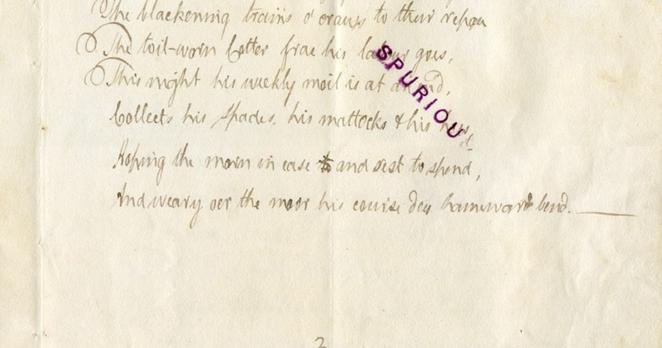 The blackening trains o' craws to their repose
The toil-worn Cotter frae his labour goes,
This night his weekly moil is at an end,
Collects his spades, his mattocks & his hoes,
Hoping the morn in ease and rest to spend,
And weary oer the moor his course does hameward bend.
SPURIOUS
2